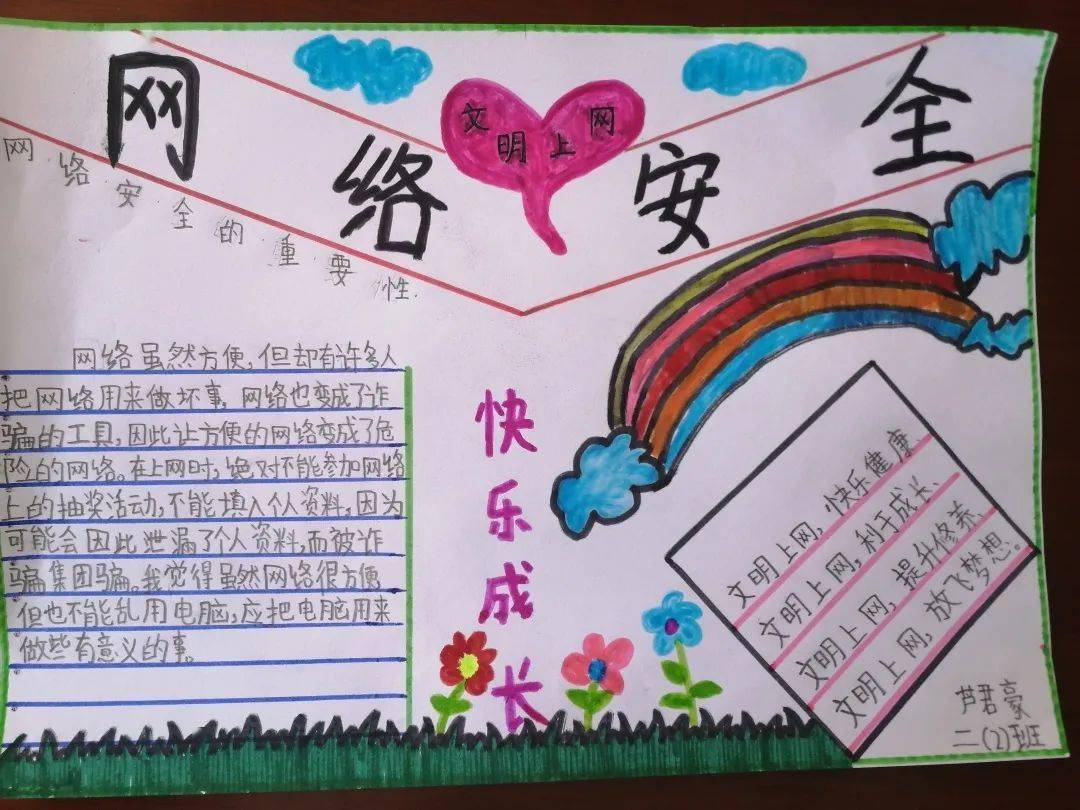 网络安全
文明上网
网络安全的重要性.
网络虽然方便,但却有许多人
把网络用来做坏事。网络也变成了诈
骗的工具,因此让方便的网络变成了危
险的网络。在上网时,绝对不能参加网络
上的抽奖活动,不能填入个人资料,因为
可能会因此泄漏了个人资料,而被诈
骗集团骗。我觉得虽然网络很方便
但也不能乱用电脑,应把电脑用来
做些有意义的事。
快乐成长
文明上网,快乐健康、
文明上网,利于成长、
文明上网,提升修养
文明上网,放飞梦想。
芦君豪
二(2)班